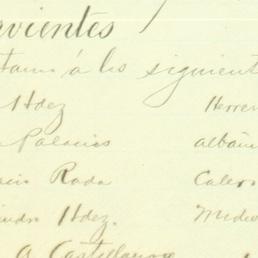 rvientes
á los siguient
Hdez Herrer
Palacios albañi
Rada Caler
Hdez. Medi
A. Castellanos